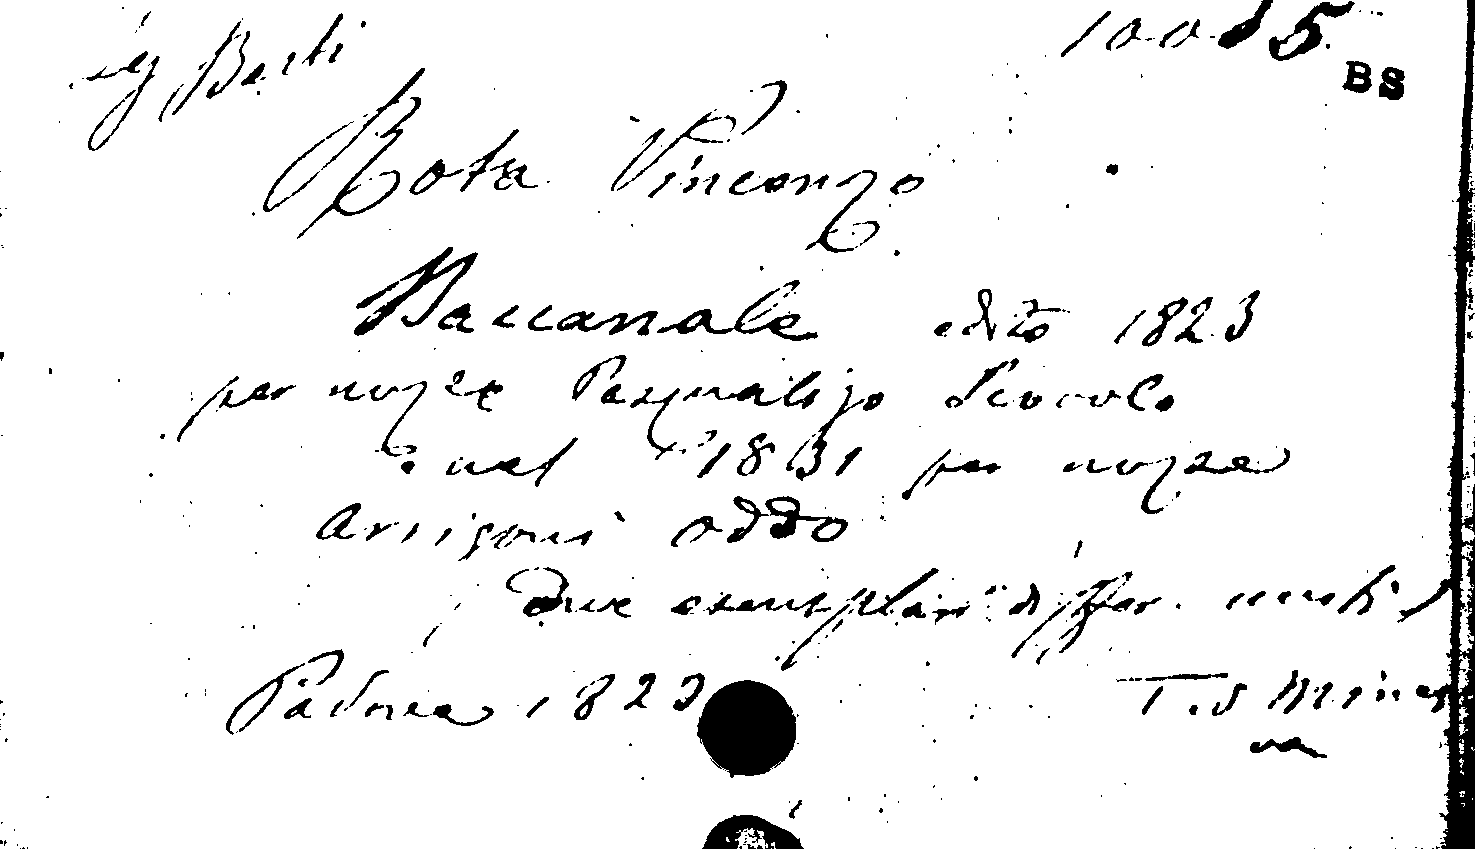 Leg Berti 10085
BS
Rota Vincenzo
Baccanale edito 1823
per nozze Pasqualigo
e nel 1831 per nozze
Arrigoni Oddo
due esemplari differ.
Padova 1823 T. d Miner
va